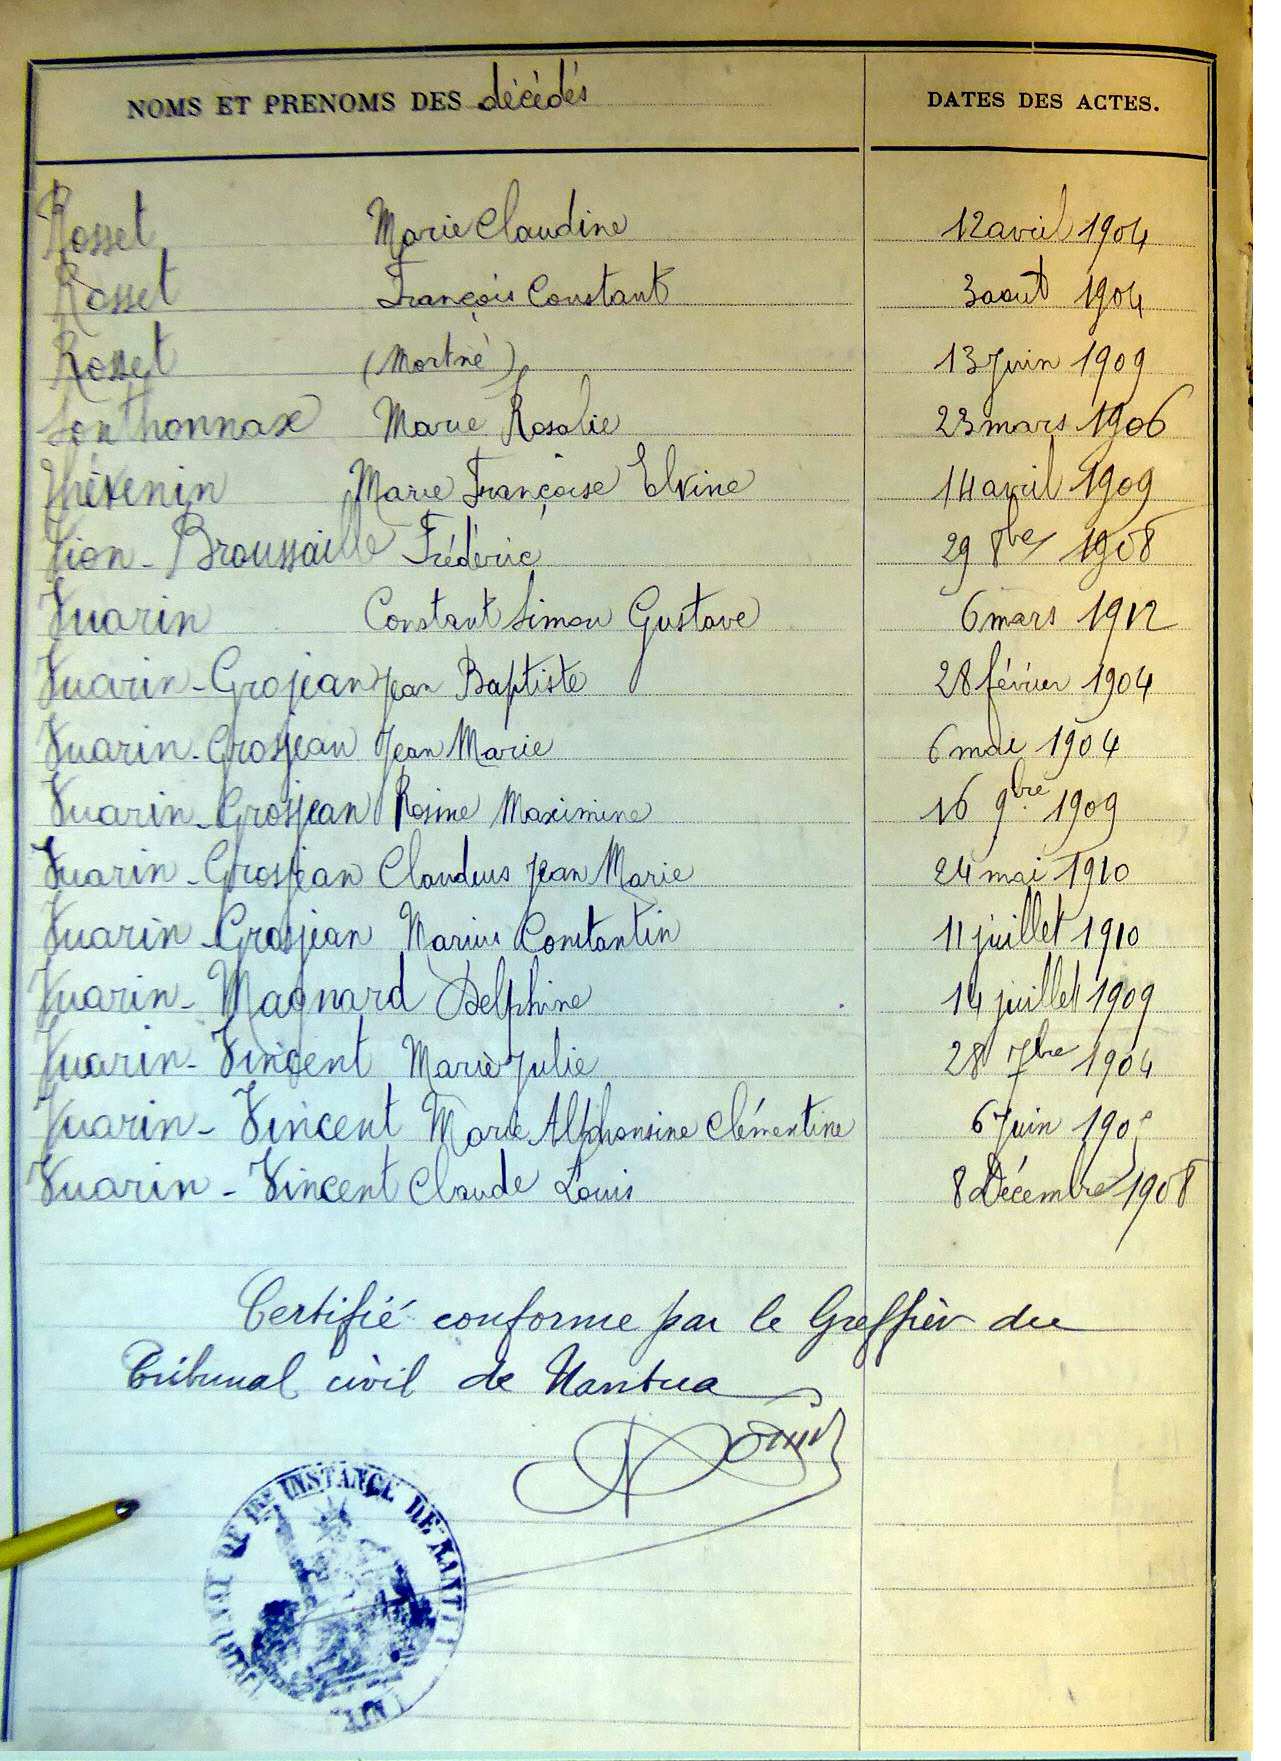 NOMS ET PRENOMS DES décédés DATES DES ACTES.
Rosset Marie Claudine 12 avril 1904
Rosset François Constant 3 août 1904
Rosset (Mortné) 13 Juin 1909
Sonthonnax Marie Rosalie 23 mars 1906
Thévenin Marie Françoise Elvine 14 avril 1909
Vion-Broussaille Frédéric 29 8bre 1908
Vuarin Constant Simon Gustave 6 mars 1912
Vuarin-Grosjean Jean Baptiste 28 février 1904
Vuarin-Grosjean Jean Marie 6 mai 1904
Vuarin-Grosjean Rosine Maximine 16 9bre 1909
Vuarin-Grosjean Claudius Jean Marie 24 mai 1910
Vuarin-Grosjean Marius Constantin 11 juillet 1910
Vuarin-Magnard Delphine 14 juillet 1909
Vuarin-Vincent Marie Julie 28 7bre 1904
Vuarin-Vincent Marie Alphonsine Clémentine 6 Juin 1905
Vuarin-Vincent Claude Louis 8 Décembre 1908
Certifié conforme par le Greffier du
Tribunal civil de Nantua
TRIBUNAL DE 1RE INSTANCE DE NANTUA